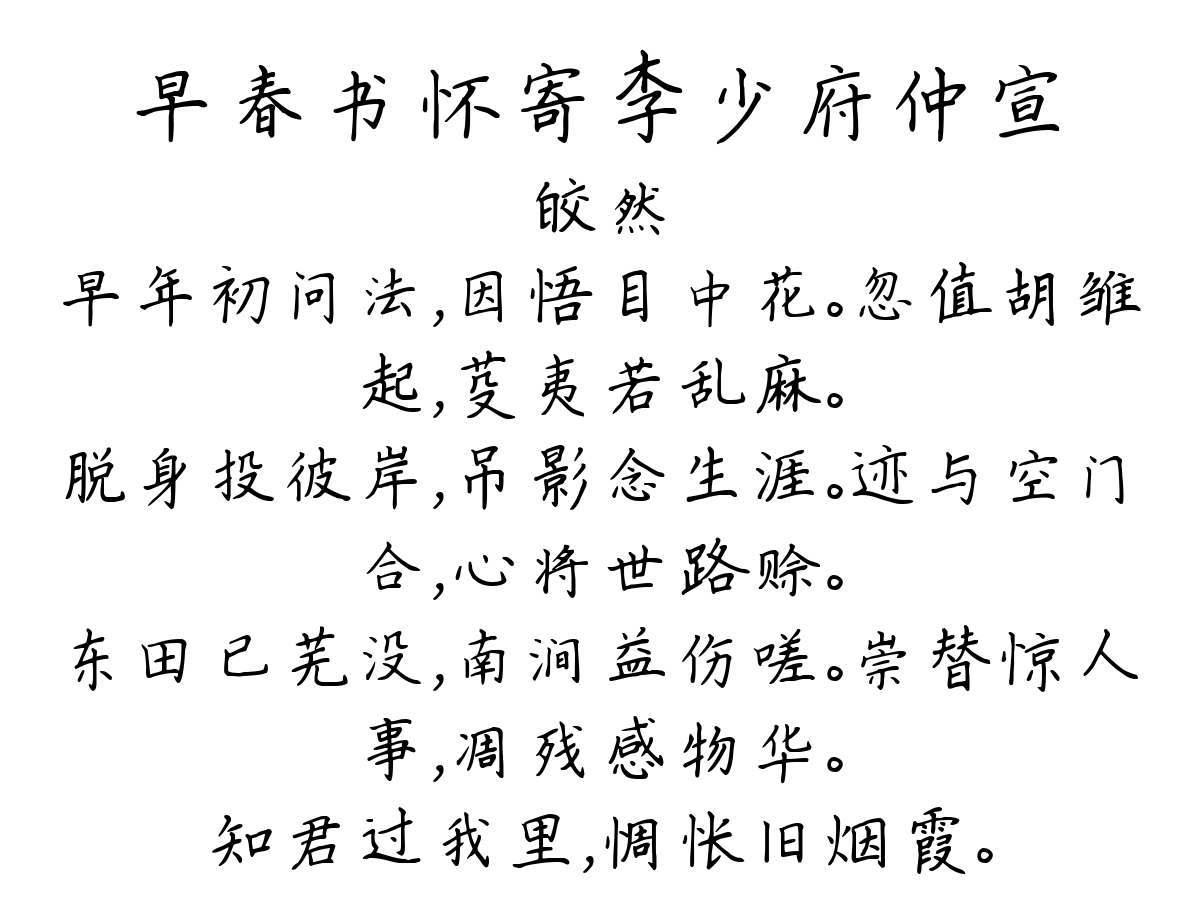 早春书怀寄李少府仲宣
皎然
早年初问法,因悟目中花。忽值胡雏
起,芟夷若乱麻。
脱身投彼岸,吊影念生涯。迹与空门
合,心将世路赊。
东田已芜没,南涧益伤嗟。崇替惊人
事,凋残感物华。
知君过我里,惆怅旧烟霞。